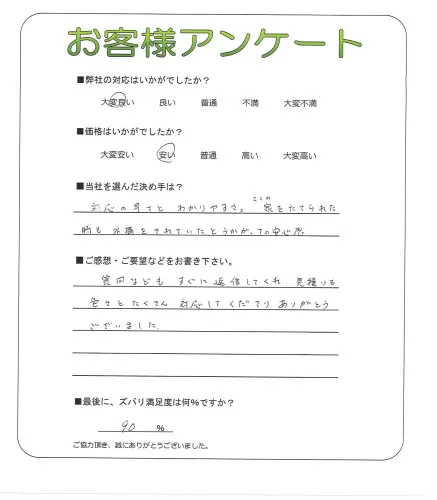 お客様アンケート
■弊社の対応はいかがでしたか？
大変良い 良い 普通 不満 大変不満
■価格はいかがでしたか？
大変安い 安い 普通 高い 大変高い
■当社を選んだ決め手は？
対応の早さと わかりやすさ。 ここの 家をたてられた
時も 外構をされていたとうかがっての安心感
■ご感想・ご要望などをお書き下さい。
質問なども すぐに返信してくれ、見積りも
色々とたくさん 対応してくださり ありがとう
ございました
■最後に、ズバリ満足度は何％ですか？
90 ％
ご協力頂き、誠にありがとうございました。